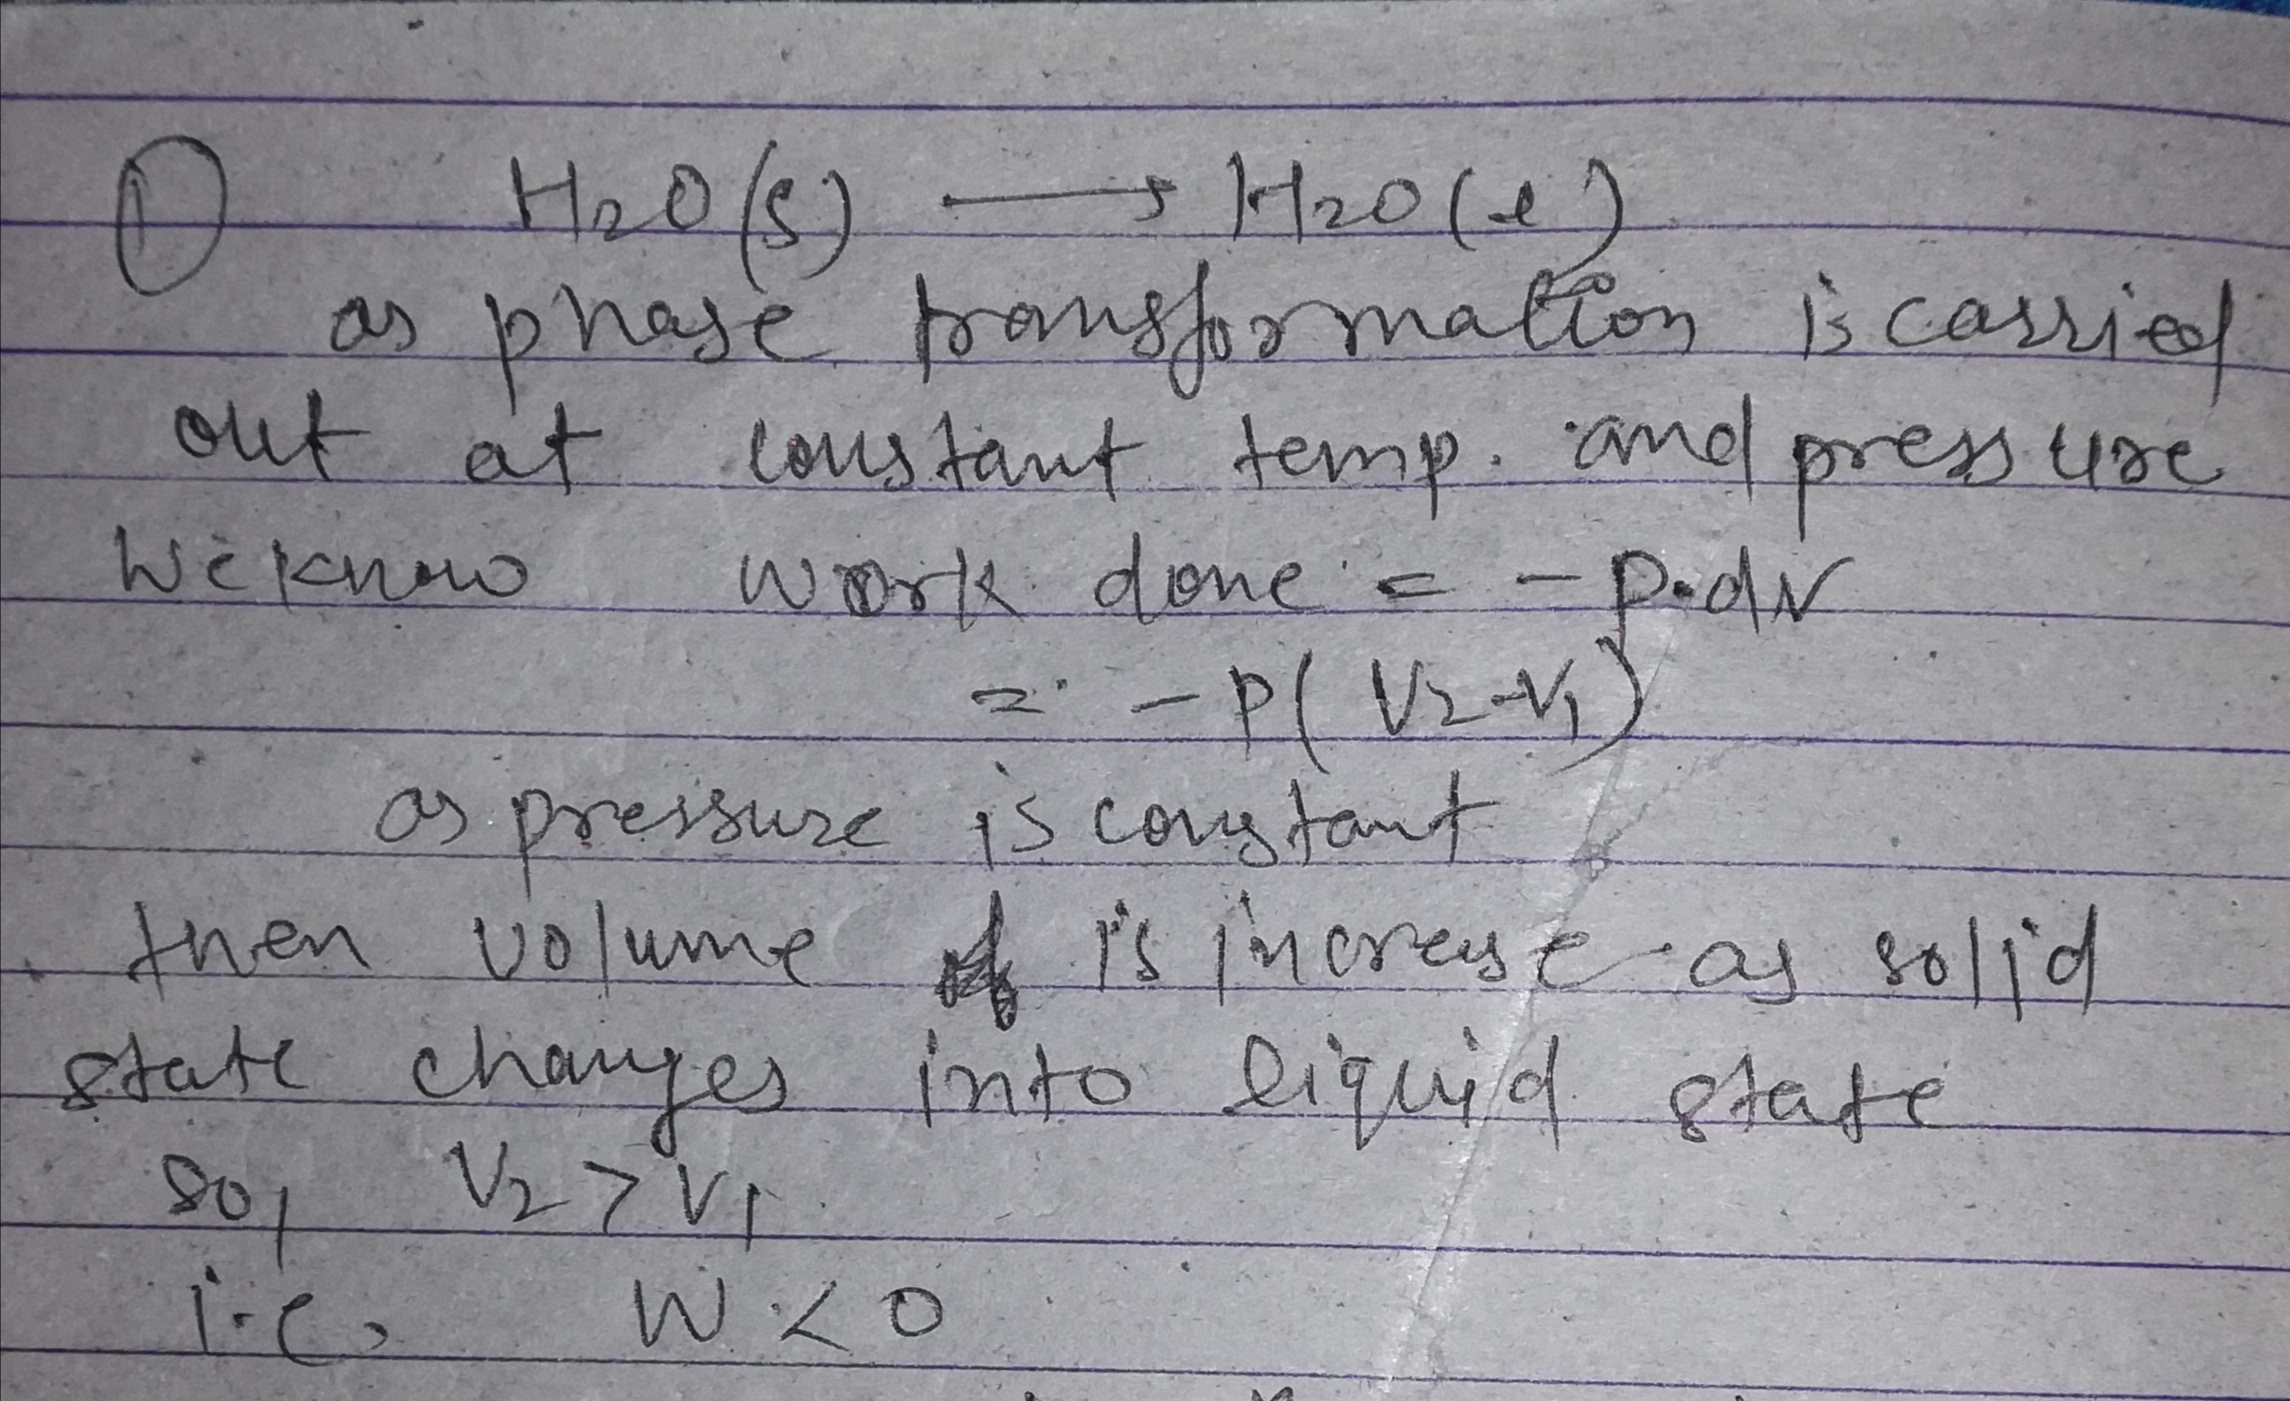 ① H2O(s) → H2O(l)
as phase transformation is carried
out at constant temp. and pressure
we know work done = - P.dV
= - P( V2-V1)
as pressure is constant
then volume is increase as solid
state changes into liquid state
so, V2 > V1
i.e, W < 0